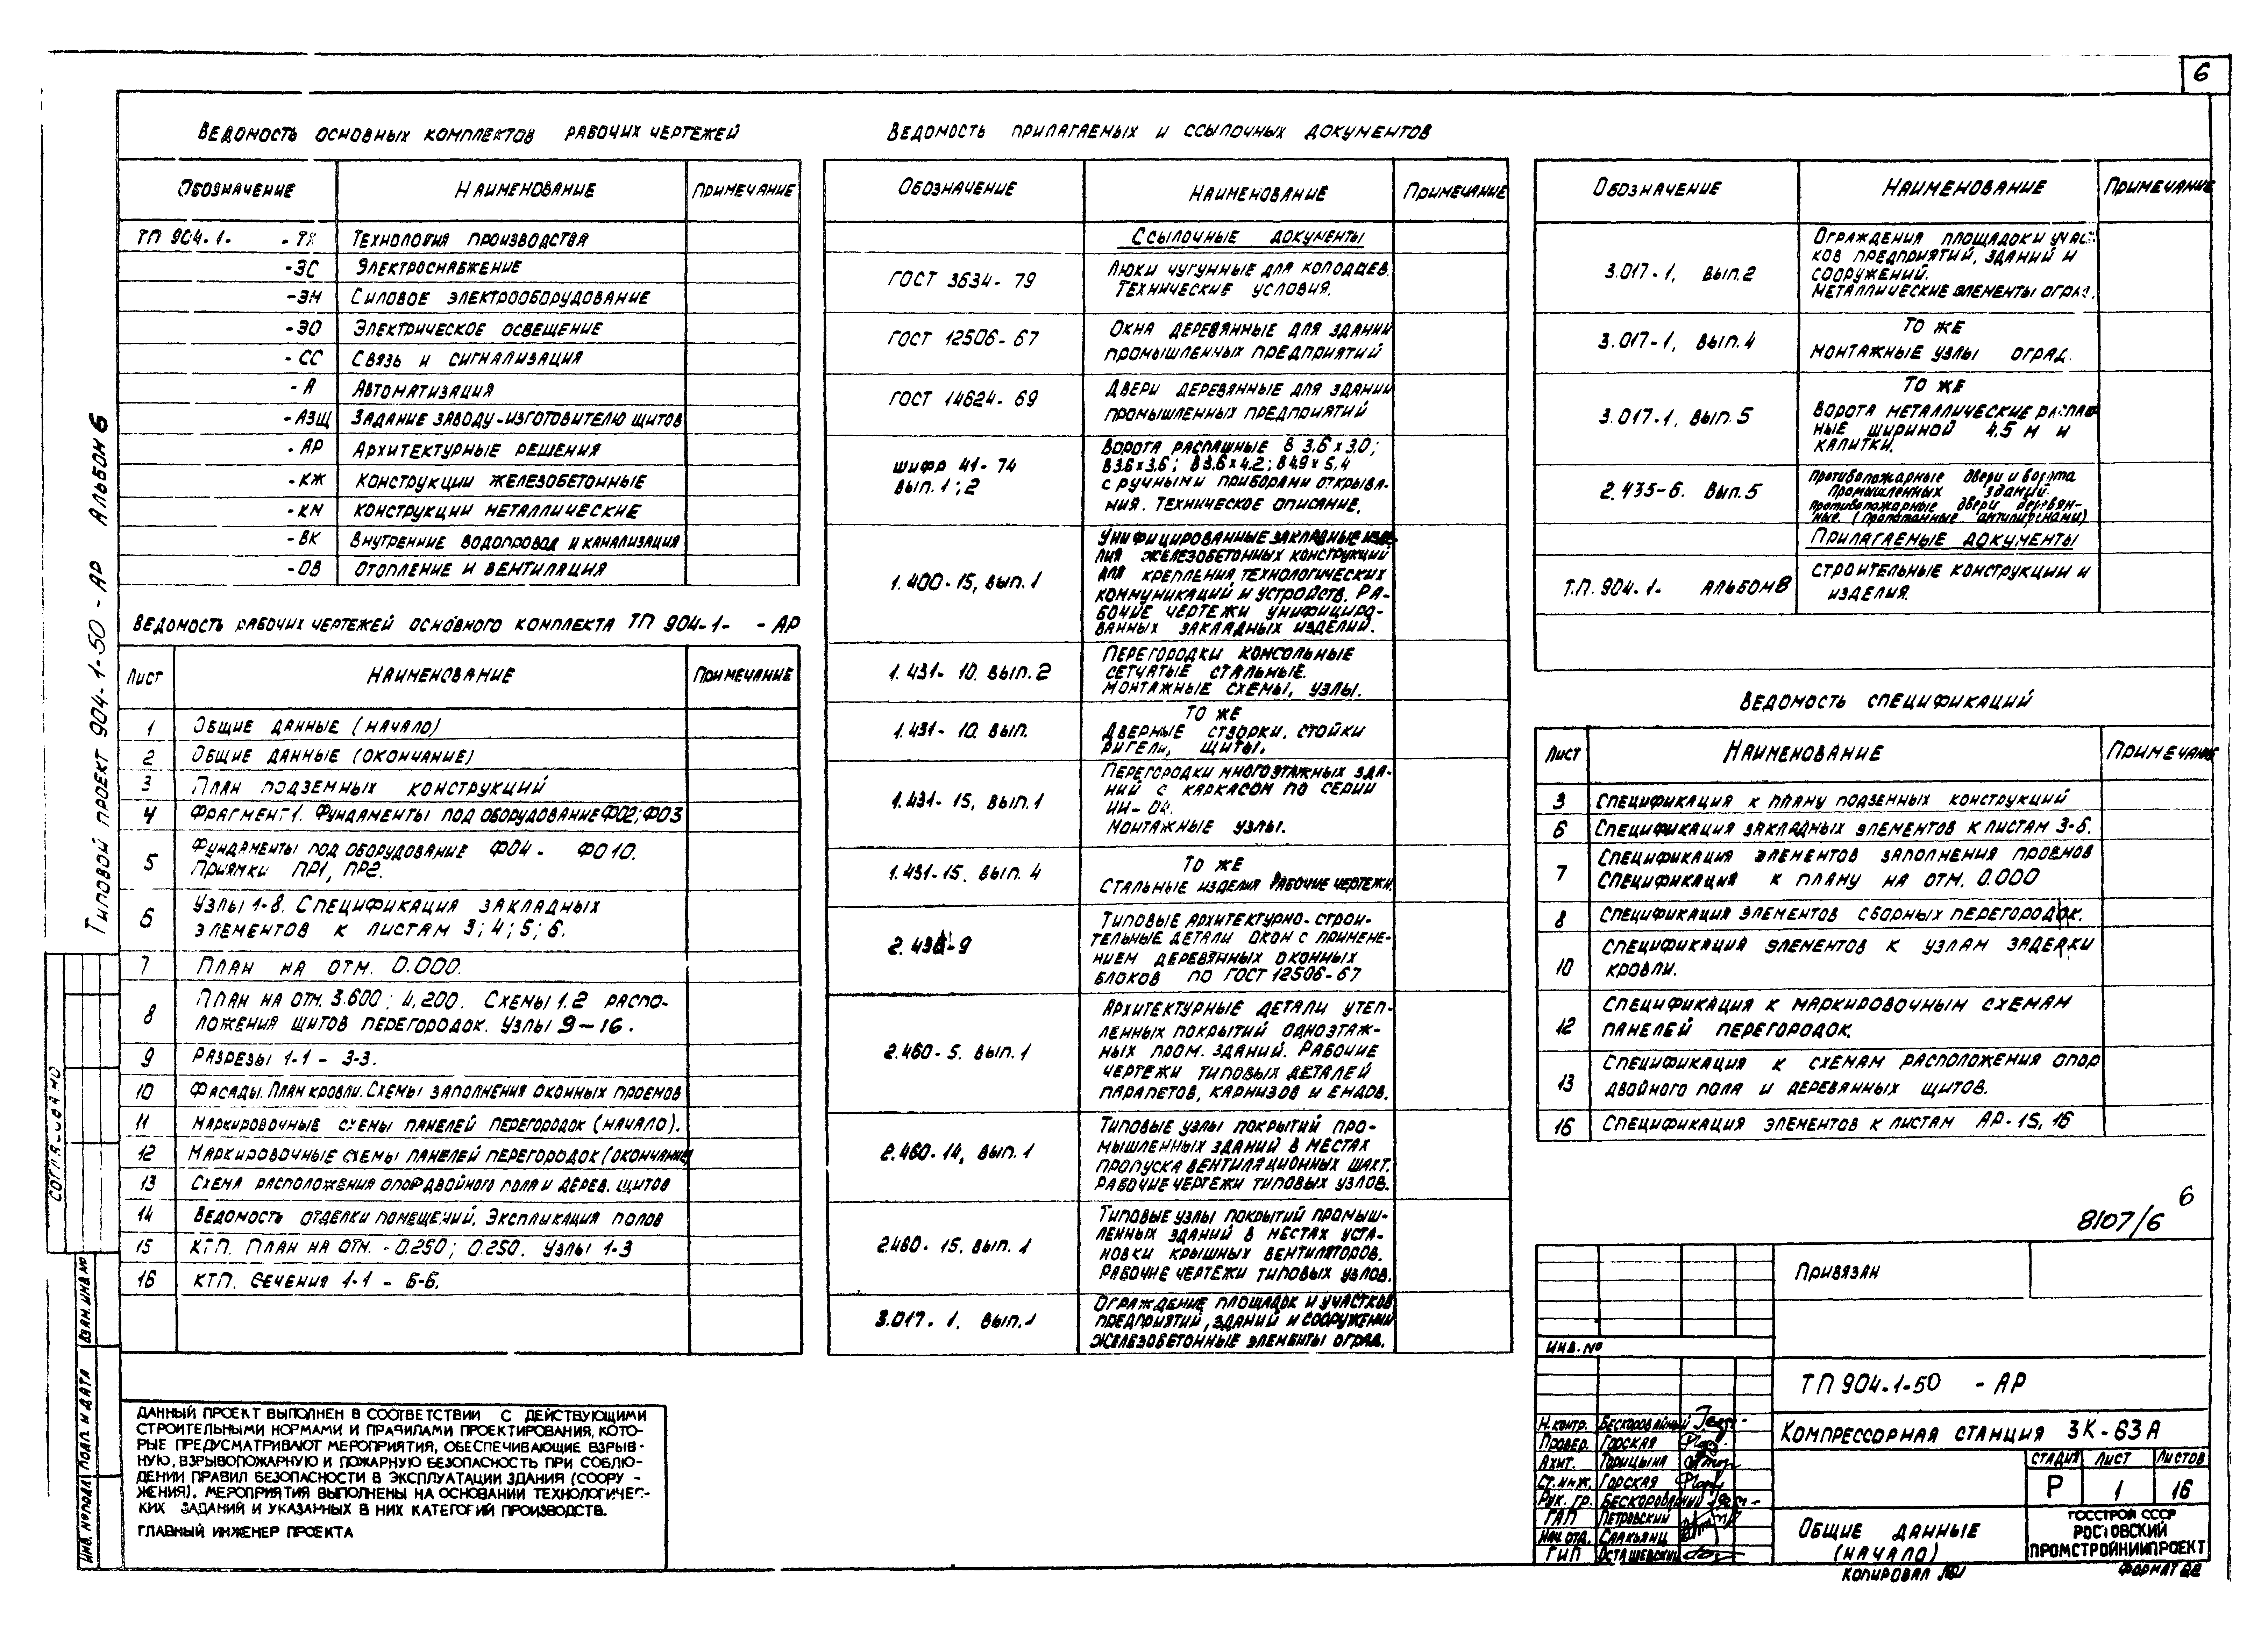 6
Ведомость основных комплектов рабочих чертежей
Обозначение Наименование Примечание
ТП 904-1- -ТХ Технология производства
-ЭС Электроснабжение
-ЭМ Силовое электрооборудование
-ЭО Электрическое освещение
-СС Связь и сигнализация
-А Автоматизация
-АЗЩ Задание заводу-изготовителю щитов
-АР Архитектурные решения
-КЖ Конструкции железобетонные
-КМ Конструкции металлические
-ВК Внутренние водопровод и канализация
-ОВ Отопление и вентиляция
Ведомость рабочих чертежей основного комплекта ТП 904-1- -АР
Лист Наименование Примечание
1 Общие данные (начало)
2 Общие данные (окончание)
3 План подземных конструкций
4 Фрагмент 1. Фундаменты под оборудование ФО2; ФО3
5 Фундаменты под оборудование ФО4 - ФО10.
Приямки ПР1, ПР2.
6 Узлы 1-8. Спецификация закладных
элементов к листам 3; 4; 5; 6.
7 План на отм. 0.000.
8 План на отм. 3.600; 4.200. Схемы 1.2 распо-
ложения щитов перегородок. Узлы 9-16.
9 Разрезы 1-1 - 3-3.
10 Фасады. План кровли. Схемы заполнения оконных проемов
11 Маркировочные схемы панелей перегородок (начало).
12 Маркировочные схемы панелей перегородок (окончание)
13 Схема расположения опор двойного пола и дерев. щитов
14 Ведомость отделки помещений. Экспликация полов
15 КТП. План на отм. -0.250; 0.250. Узлы 1-3
16 КТП. Сечения 1-1 - 6-6.
Ведомость прилагаемых и ссылочных документов
Обозначение Наименование Примечание
Ссылочные документы
ГОСТ 3634-79 Люки чугунные для колодцев.
Технические условия.
ГОСТ 12506-67 Окна деревянные для зданий
промышленных предприятий
ГОСТ 14624-69 Двери деревянные для зданий
промышленных предприятий
шифр 41-74
вып. 1; 2
Ворота распашные В 3.6х3.0;
В3.6х3.6; В3.6х4.2; В4.9х5,4
с ручными приборами открыва-
ния. Техническое описание.
1.400-15, вып. 1 Унифицированные закладные изде-
лия железобетонных конструкций
для крепления технологических
коммуникаций и устройств. Ра-
бочие чертежи унифициро-
ванных закладных изделий.
1.431-10. вып. 2 Перегородки консольные
сетчатые стальные.
Монтажные схемы, узлы.
1.431-10. вып. То же
Дверные створки, стойки
ригели, щиты.
1.431-15, вып. 1 Перегородки многоэтажных зда-
ний с каркасом по серии
ИИ-04.
Монтажные узлы.
1.431-15. вып. 4 То же
Стальные изделия рабочие чертежи.
Типовые архитектурно-строи-
тельные детали окон с примене-
нием деревянных оконных
блоков по ГОСТ 12506-67
2.460-5. вып. 1 Архитектурные детали утеп-
ленных покрытий одноэтаж-
ных пром. зданий. Рабочие
чертежи типовых деталей
парапетов, карнизов и ендов.
2.460-14, вып. 1 Типовые узлы покрытий про-
мышленных зданий в местах
пропуска вентиляционных шахт.
Рабочие чертежи типовых узлов.
2.460-15. вып. 1 Типовые узлы покрытий промыш-
ленных зданий в местах уста-
новки крышных вентиляторов.
Рабочие чертежи типовых узлов.
3.017-1. вып. 1 Ограждение площадок и участков
предприятий, зданий и сооружений
Железобетонные элементы оград.
Обозначение Наименование Примечание
3.017-1, вып. 2 Ограждения площадок и учас-
ков предприятий, зданий и
сооружений.
Металлические элементы оград.
3.017-1, вып. 4 То же
Монтажные узлы оград.
3.017-1, вып. 5 То же
Ворота металлические распаш
ные шириной 4.5 м и
калитки.
2.435-6. вып. 5 Противопожарные двери и ворота
промышленных зданий.
Противопожарные двери деревян-
ные. (пропитанные антипиренами)
Прилагаемые документы
Т.П. 904-1- Альбом 8 Строительные конструкции и
изделия.
Ведомость спецификаций
Лист Наименование Примечание
3 Спецификация к плану подземных конструкций
6 Спецификация закладных элементов к листам 3-6.
7 Спецификация элементов заполнения проемов
Спецификация к плану на отм. 0.000
8 Спецификация элементов сборных перегородок.
10 Спецификация элементов к узлам заделки
кровли.
12 Спецификация к маркировочным схемам
панелей перегородок.
13 Спецификация к схемам расположения опор
двойного пола и деревянных щитов.
16 Спецификация элементов к листам АР-15, 16
8107/6 6
Привязан
Инв. №
ТП 904-1-50 -АР
Компрессорная станция 3К-63А
Н. контр. Бескоровайный
Провер. Горская
Архит. Горицына
Ст. инж. Горская
Рук. гр. Бескоровайный
ГАП Петровский
Нач. отд. Саакьянц
ГИП Осташевский
Стадия Лист Листов
Р 1 16
Общие данные
(начало)
ГОССТРОЙ СССР
РОСТОВСКИЙ
ПРОМСТРОЙНИИПРОЕКТ
Копировал
Формат 22
ДАННЫЙ ПРОЕКТ ВЫПОЛНЕН В СООТВЕТСТВИИ С ДЕЙСТВУЮЩИМИ
СТРОИТЕЛЬНЫМИ НОРМАМИ И ПРАВИЛАМИ ПРОЕКТИРОВАНИЯ, КОТО-
РЫЕ ПРЕДУСМАТРИВАЮТ МЕРОПРИЯТИЯ, ОБЕСПЕЧИВАЮЩИЕ ВЗРЫВ-
НУЮ, ВЗРЫВОПОЖАРНУЮ И ПОЖАРНУЮ БЕЗОПАСНОСТЬ ПРИ СОБЛЮ-
ДЕНИИ ПРАВИЛ БЕЗОПАСНОСТИ В ЭКСПЛУАТАЦИИ ЗДАНИЯ (СООРУ-
ЖЕНИЯ). МЕРОПРИЯТИЯ ВЫПОЛНЕНЫ НА ОСНОВАНИИ ТЕХНОЛОГИЧЕС-
КИХ ЗАДАНИЙ И УКАЗАННЫХ В НИХ КАТЕГОРИЙ ПРОИЗВОДСТВ.
ГЛАВНЫЙ ИНЖЕНЕР ПРОЕКТА
Типовой проект 904-1-50-АР Альбом 6
Согласовано
Инв. № подл. Подп. и дата Взам. инв. №